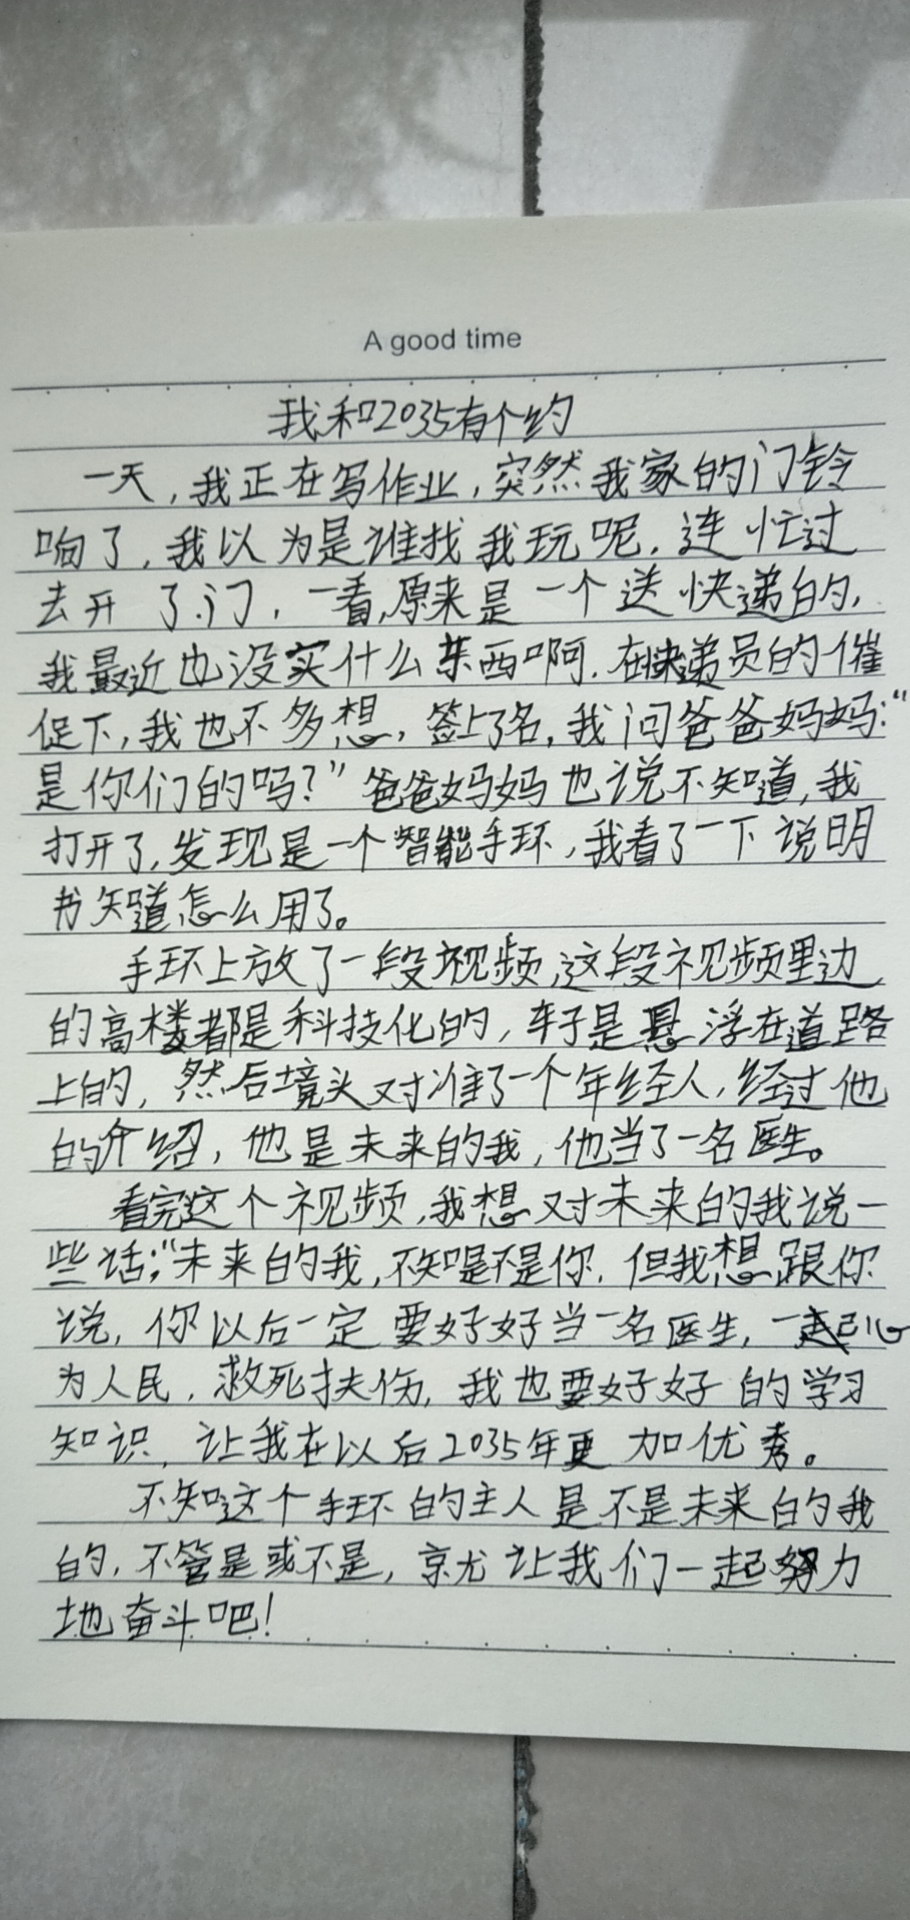 A good time
我和2035有个约
一天,我正在写作业,突然我家的门铃
响了,我以为是谁找我玩呢,连忙过
去开了门,一看,原来是一个送快递的,
我最近也没买什么东西啊,在快递员的催
促下,我也不多想,签上了名,我问爸爸妈妈:“
是你们的吗?”爸爸妈妈也说不知道,我
打开了,发现是一个智能手环,我看了一下说明
书知道怎么用了。
手环上放了一段视频,这段视频里边
的高楼都是科技化的,车子是悬浮在道路
上的,然后镜头对准了一个年经人,经过他
的介绍,他是未来的我,他当了一名医生。
看完这个视频,我想对未来的我说一
些话:“未来的我,不知是不是你,但我想跟你
说,你以后一定要好好当一名医生,一心
为人民,救死扶伤,我也要好好的学习
知识,让我在以后2035年更加优秀。
不知这个手环的主人是不是未来的我
的,不管是或不是,就让我们一起努力
地奋斗吧!